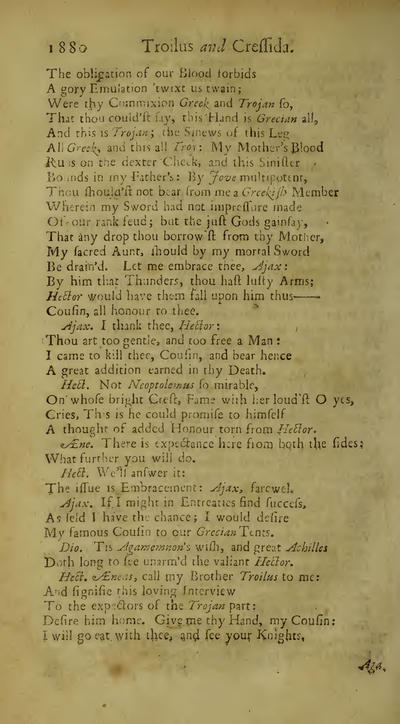 1880 Troilus and Cressida.
The obligation of our Blood forbids
A gory Emulation 'twixt us twain;
Were thy Commixion Greek and Trojan so,
That thou could'st say, this Hand is Grecian all,
And this is Trojan; the Sinews of this Leg
All Greek, and this all Troy: My Mother's Blood
Runs on the dexter Cheek, and this Sinister
Bounds in my Father's: By Jove multipotent,
Thou should'st not bear from me a Greekish Member
Wherein my Sword had not impressure made
Of our rank feud; but the just Gods gainsay,
That any drop thou borrow'st from thy Mother,
My sacred Aunt, should by my mortal Sword
Be drain'd. Let me embrace thee, Ajax:
By him that Thunders, thou hast lusty Arms;
Hector would have them fall upon him thus——
Cousin, all honour to thee.
Ajax. I thank thee, Hector:
Thou art too gentle, and too free a Man:
I came to kill thee, Cousin, and bear hence
A great addition earned in thy Death.
Hect. Not Neoptolemus so mirable,
On whose bright Crest, Fame with her loud'st O yes,
Cries, This is he could promise to himself
A thought of added Honour torn from Hector.
Æne. There is expectance here from both the sides;
What further you will do.
Hect. We'll answer it:
The issue is Embracement: Ajax, farewel.
Ajax. If I might in Entreaties find success,
As seld I have the chance; I would desire
My famous Cousin to our Grecian Tents.
Dio. 'Tis Agamemnon's wish, and great Achilles
Doth long to see unarm'd the valiant Hector.
Hect. Æneas, call my Brother Troilus to me:
And signifie this loving Interview
To the expectors of the Trojan part:
Desire him home. Give me thy Hand, my Cousin:
I will go eat with thee, and see your Knights,
Aga.